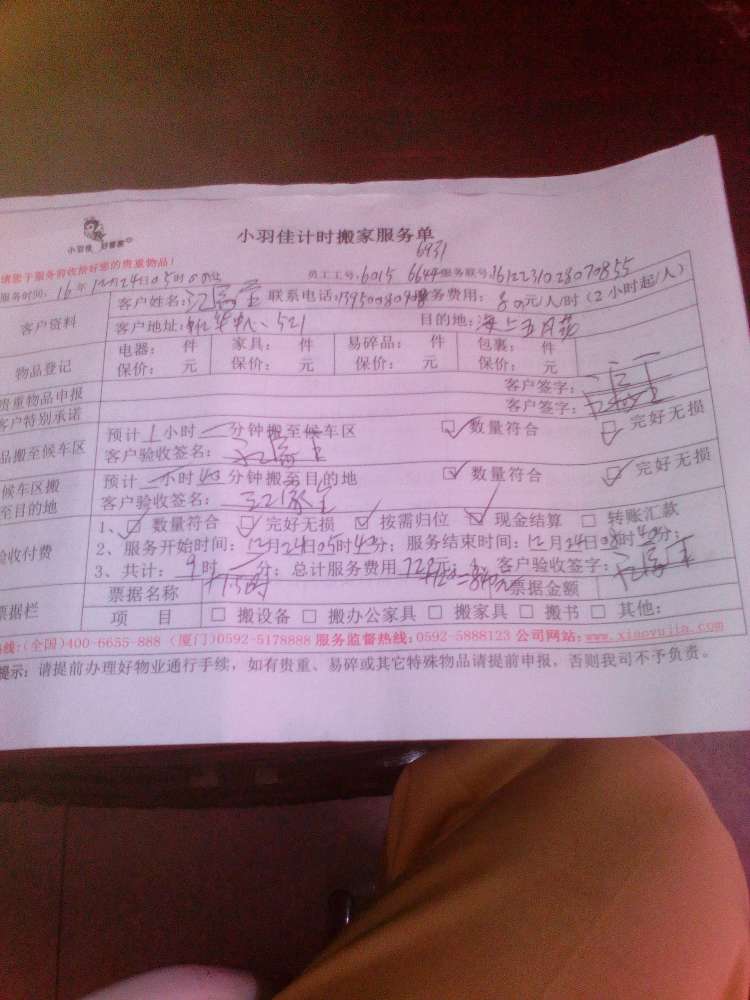 小羽佳 好管家
小羽佳计时搬家服务单
6931
请您于服务前收拾好您的贵重物品!
服务时间: 16年12月24日05时00分 员工工号: 6015 6644 服务联号: 1612231028070855
客户资料
客户姓名: 联系电话: 服务费用: 80元/人/时(2小时起/人)
客户地址: 521 目的地: 海上五月花
物品登记
电器: 件 家具: 件 易碎品: 件 包裹: 件
保价: 元 保价: 元 保价: 元 保价: 元
贵重物品申报 客户签字:
客户特别承诺 客户签字:
品搬至候车区
预计1小时 分钟搬至候车区 数量符合 完好无损
客户验收签名:
候车区搬至目的地
预计 小时40分钟搬至目的地 数量符合 完好无损
客户验收签名:
验收付费
1、 数量符合 完好无损 按需归位 现金结算 转账汇款
2、服务开始时间: 12月24日05时40分; 服务结束时间: 12月24日08时40分;
3、共计: 9时 分; 总计服务费用 720元 客户验收签字:
+1.5时 +120=840元
票据栏
票据名称 票据金额
项 目 搬设备 搬办公家具 搬家具 搬书 其他:
热线:(全国)400-6655-888 (厦门)0592-5178888 服务监督热线:0592-5888123 公司网站: www.xiaoyujia.com
提示: 请提前办理好物业通行手续, 如有贵重、易碎或其它特殊物品请提前申报, 否则我司不予负责。